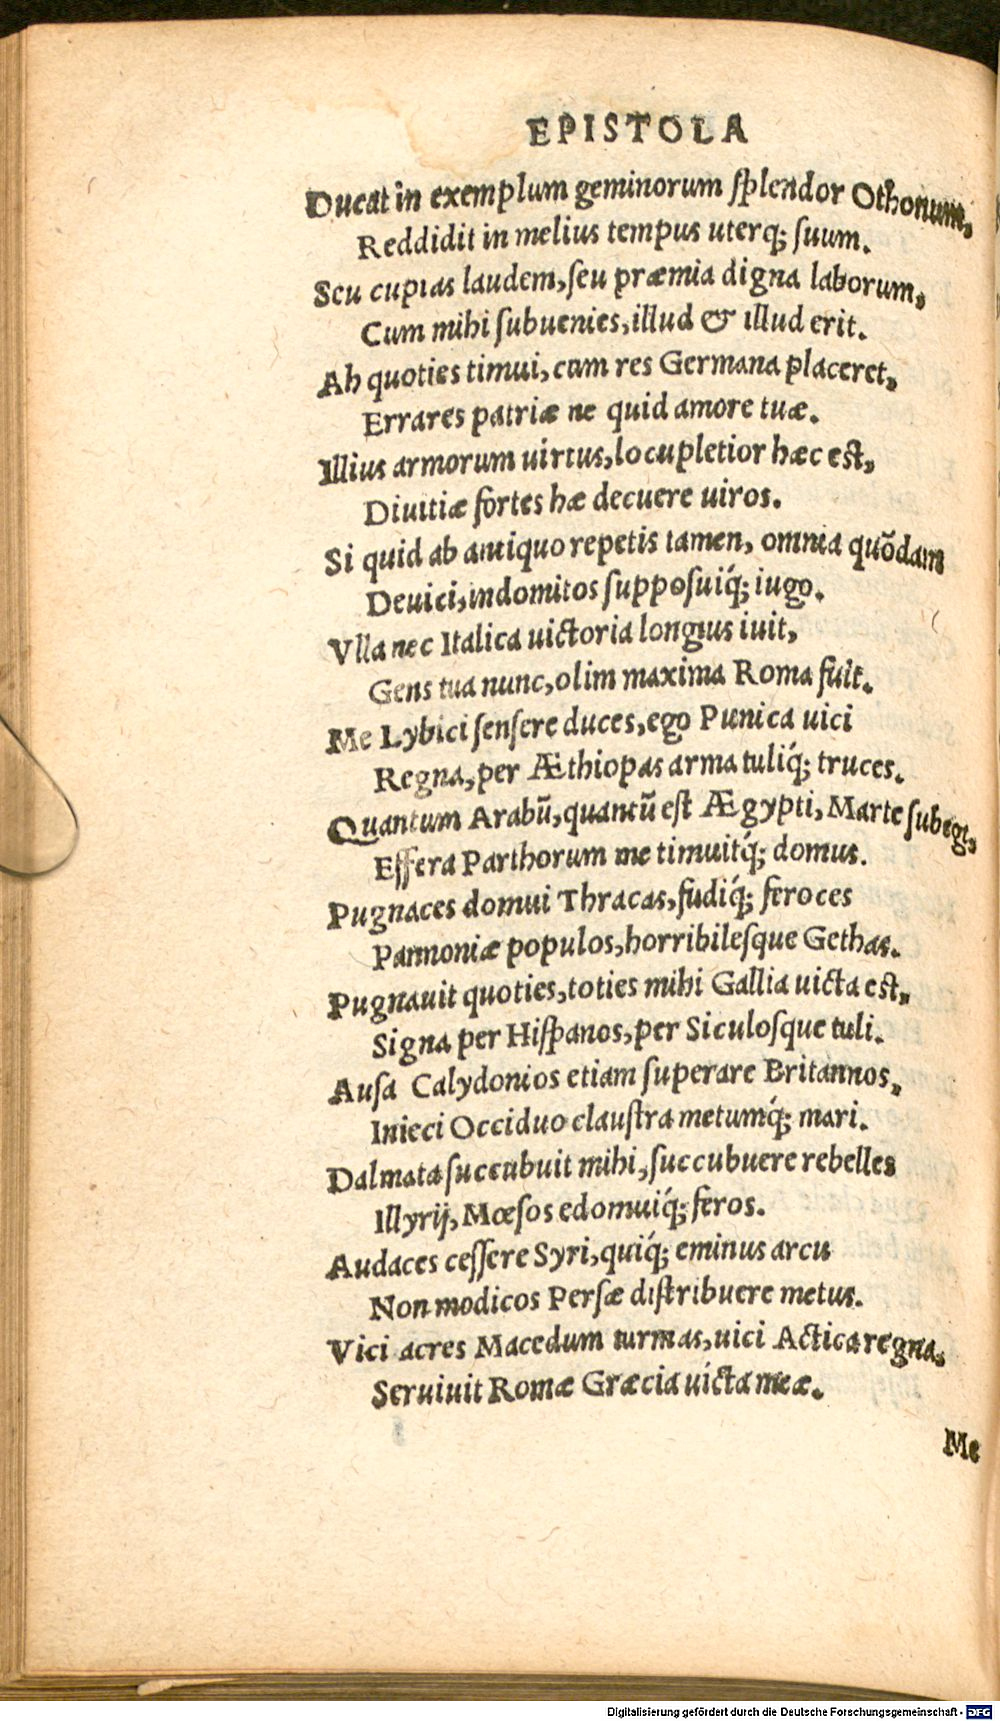 EPISTOLA
Ducat in exemplum geminorum ſplendor Othonum,
Reddidit in melius tempus uterq; ſuum.
Seu cupias laudem, ſeu præmia digna laborum,
Cum mihi ſubuenies, illud & illud erit.
Ah quoties timui, cum res Germana placeret,
Errares patriæ ne quid amore tuæ.
Illius armorum uirtus, locupletior hæc eſt,
Diuitiæ fortes hæ decuere uiros.
Si quid ab antiquo repetis tamen, omnia quõdam
Deuici, indomitos ſuppoſuiq́; iugo.
Vlla nec Italica uictoria longius iuit,
Gens tua nunc, olim maxima Roma fuit.
Me Lybici ſenſere duces, ego Punica uici
Regna, per Æthiopas arma tuliq́; truces.
Quantum Arabũ, quantũ eſt Ægypti, Marte ſubegi,
Effera Parthorum me timuitq́; domus.
Pugnaces domui Thracas, fudiq́; feroces
Pannoniæ populos, horribileſque Gethas.
Pugnauit quoties, toties mihi Gallia uicta eſt,
Signa per Hiſpanos, per Siculoſque tuli.
Auſa Calydonios etiam ſuperare Britannos,
Inieci Occiduo clauſtra metumq́; mari.
Dalmata ſuccubuit mihi, ſuccubuere rebelles
Illyrij, Mœſos edomuiq́; feros.
Audaces ceſſere Syri, quiq́; eminus arcu
Non modicos Perſæ diſtribuere metus.
Vici acres Macedum turmas, uici Actica regna,
Seruiuit Romæ Græcia uicta meæ.
Me
Digitalisierung gefördert durch die Deutsche Forschungsgemeinschaft - DFG